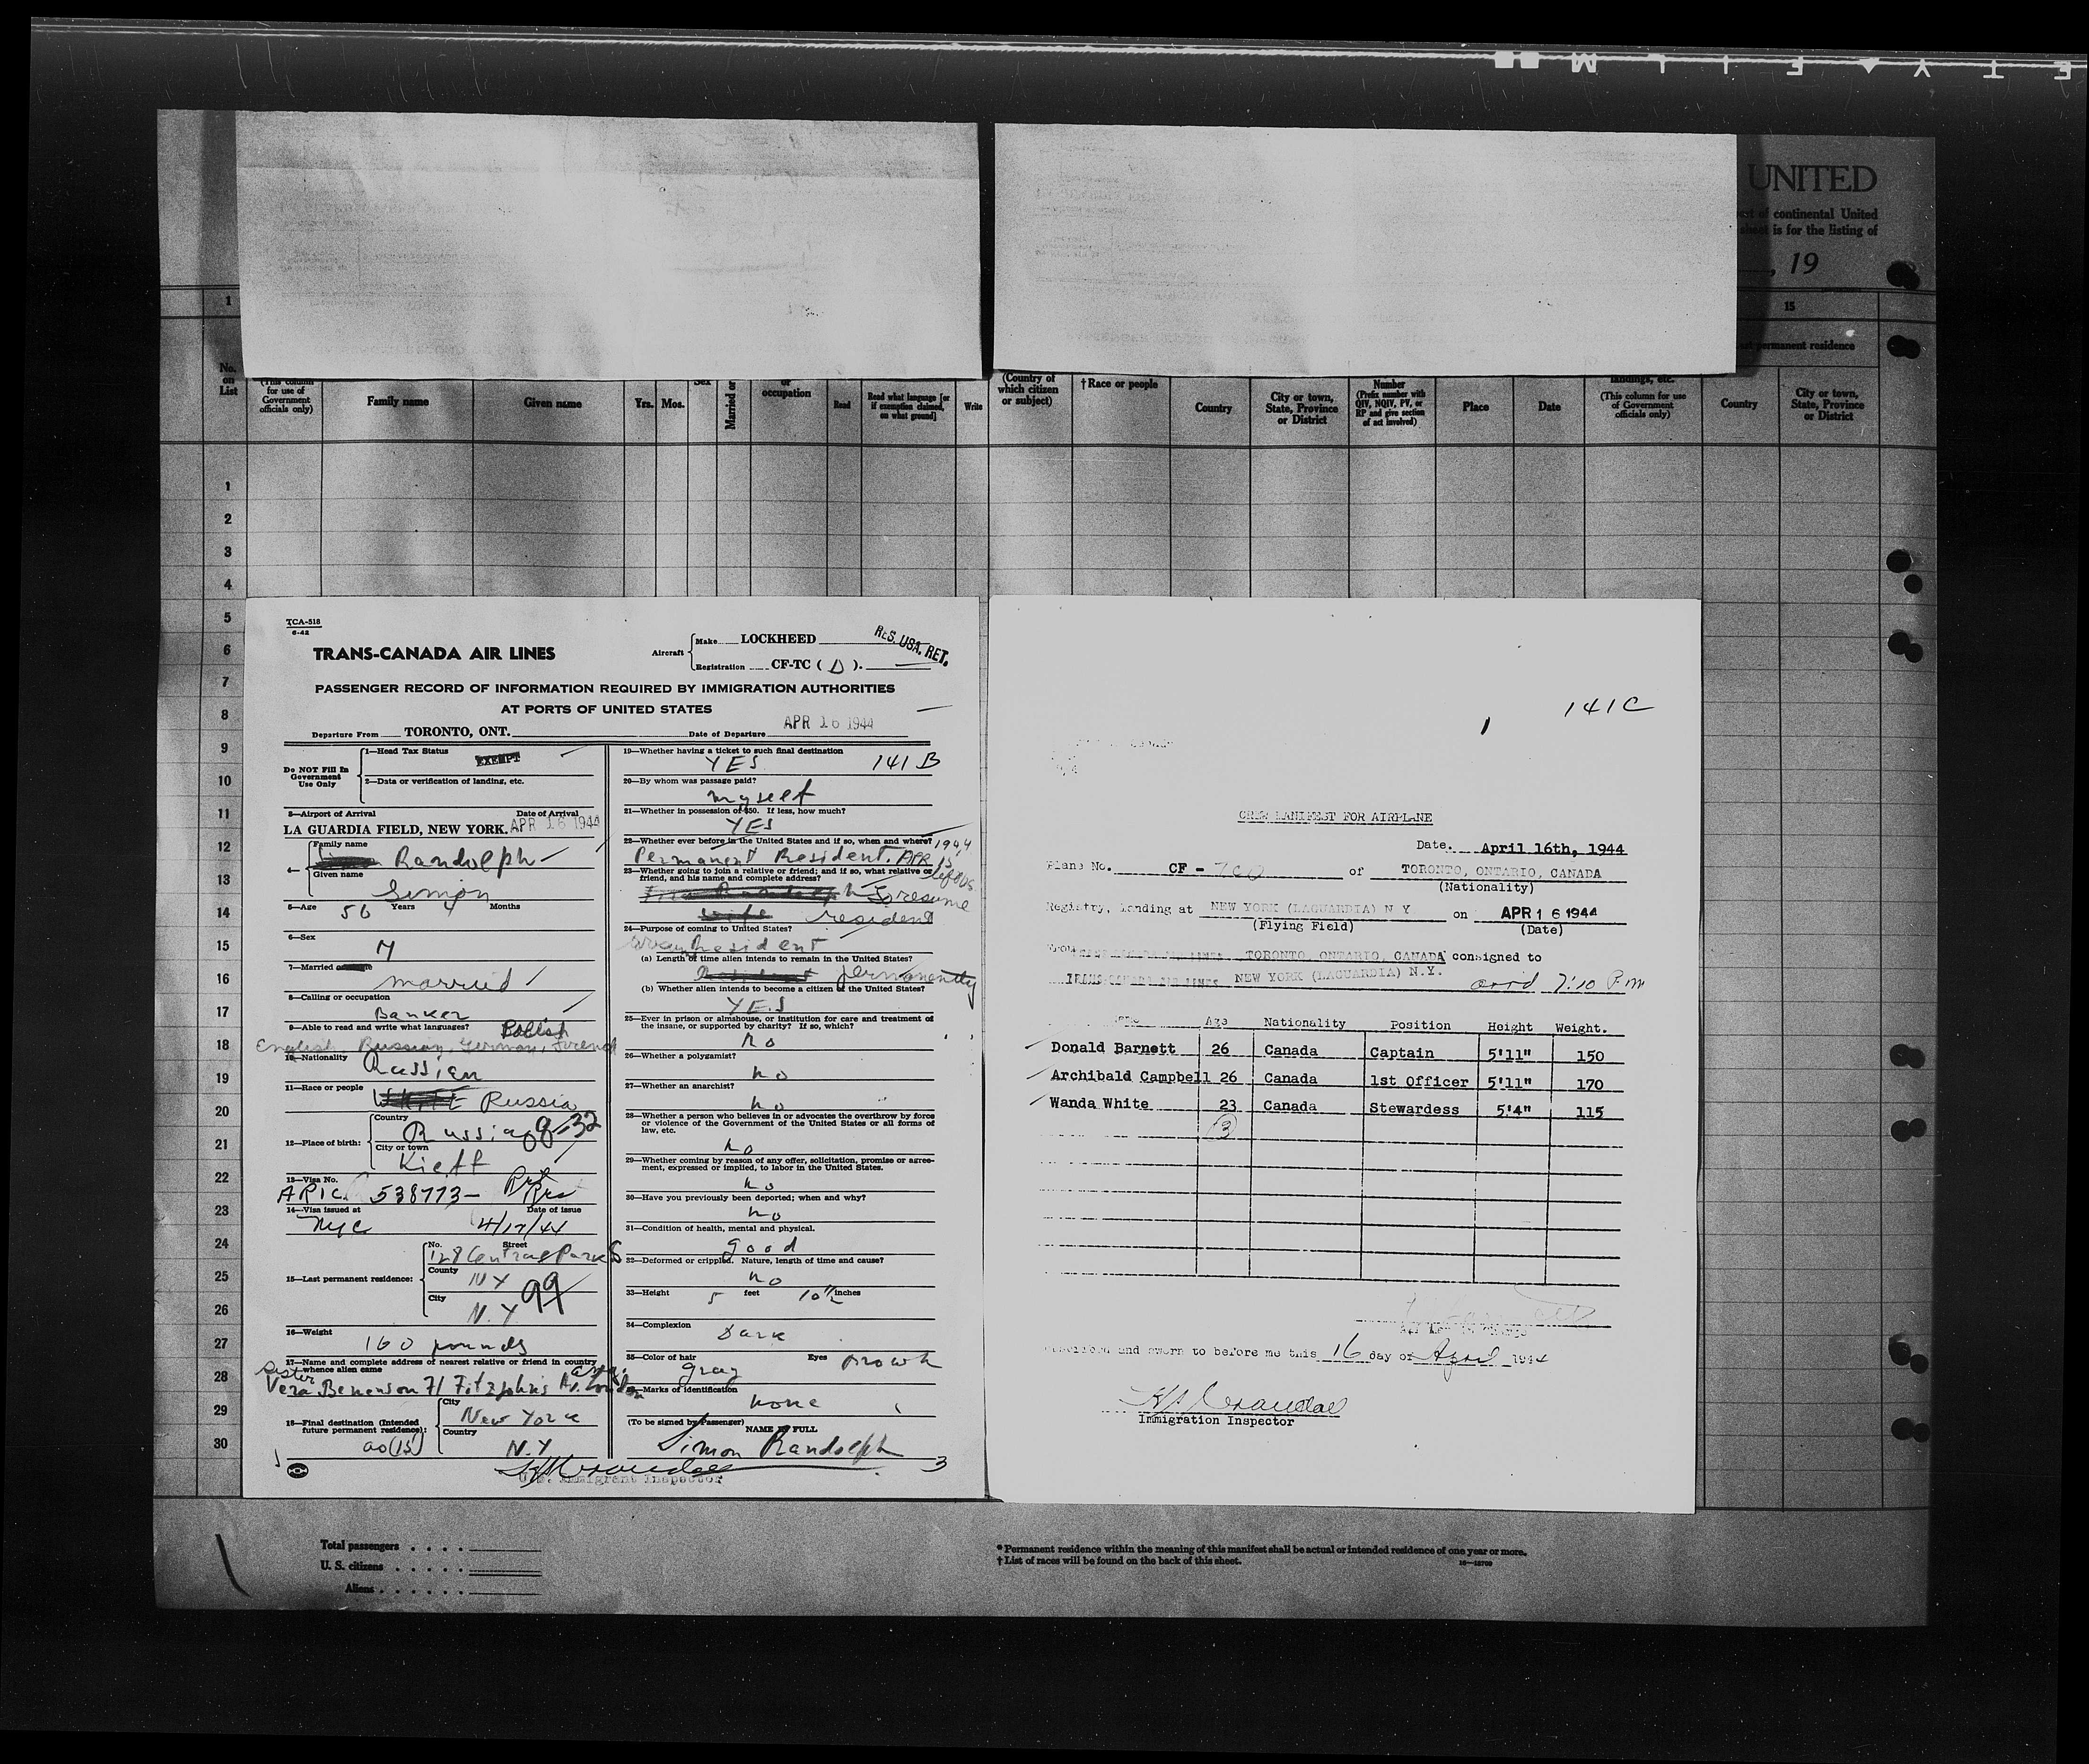 E T Y F I L M
UNITED
of continental United
is for the listing of
, 19
1
15
permanent residence
No.
on
List
(This column
for use of
Government
officials only)
Family name
Given name
Yrs.
Mos.
Sex
Married or
or
occupation
Read
Read what language [or
if exemption claimed,
on what ground]
Write
(Country of
which citizen
or subject)
† Race or people
Country
City or town,
State, Province
or District
Number
(Prefix number with
QIV, NQIV, PV, or
RP and give section
of act involved)
Place
Date
landings, etc.
(This column for use
of Government
officials only)
Country
City or town,
State, Province
or District
1
2
3
4
5
6
7
8
9
10
11
12
13
14
15
16
17
18
19
20
21
22
23
24
25
26
27
28
29
30
TCA-518
6-42
TRANS-CANADA AIR LINES
Aircraft
Make LOCKHEED
Registration CF-TC ( D ).
RES. USA. RET.
PASSENGER RECORD OF INFORMATION REQUIRED BY IMMIGRATION AUTHORITIES
AT PORTS OF UNITED STATES
Departure From TORONTO, ONT. Date of Departure APR 16 1944
Do NOT Fill In
Government
Use Only
1—Head Tax Status
EXEMPT
2—Data or verification of landing, etc.
3—Airport of Arrival Date of Arrival
LA GUARDIA FIELD, NEW YORK. APR 16 1944
4—
Family name
Randolph
Given name
Simon
5—Age 56 Years 4 Months
6—Sex
M
7—Married
married
8—Calling or occupation
Banker
9—Able to read and write what languages? Polish
English, Russian, German, French
10—Nationality
Russian
11—Race or people
WHITE Russia
12—Place of birth:
Country
Russia 8-32
City or town
Kieff
13—Visa No.
ARIC. 538773—
14—Visa issued at Date of issue
NYC 4/12/44
15—Last permanent residence:
No. Street
128 Central Park S
County
NY
City
N.Y 99
16—Weight
160 pounds
17—Name and complete address of nearest relative or friend in country
whence alien came
Sister
Vera Benenson 71 Fitzjohns Av. London
18—Final destination (Intended
future permanent residence):
City
New York
Country
N.Y
U.S. Immigrant Inspector
19—Whether having a ticket to such final destination
YES 141 B
20—By whom was passage paid?
myself
21—Whether in possession of $50. If less, how much?
YES
22—Whether ever before in the United States and if so, when and where? 1944
Permanent Resident. APR 15
left US.
23—Whether going to join a relative or friend; and if so, what relative or
friend, and his name and complete address?
To resume
wife resident
24—Purpose of coming to United States?
Resident
(a) Length of time alien intends to remain in the United States?
Resident permanently
(b) Whether alien intends to become a citizen of the United States?
YES
25—Ever in prison or almshouse, or institution for care and treatment of
the insane, or supported by charity? If so, which?
no
26—Whether a polygamist?
no
27—Whether an anarchist?
no
28—Whether a person who believes in or advocates the overthrow by force
or violence of the Government of the United States or all forms of
law, etc.
no
29—Whether coming by reason of any offer, solicitation, promise or agree-
ment, expressed or implied, to labor in the United States.
no
30—Have you previously been deported; when and why?
no
31—Condition of health, mental and physical.
good
32—Deformed or crippled. Nature, length of time and cause?
no
33—Height 5 feet 10 1/2 inches
34—Complexion
Dark
35—Color of hair Eyes
gray brown
36—Marks of identification
none
(To be signed by Passenger) NAME IN FULL
Simon Randolph
3
141C
CREW MANIFEST FOR AIRPLANE
Date. April 16th, 1944
Plane No. CF - of TORONTO, ONTARIO, CANADA
(Nationality)
Registry, landing at NEW YORK (LAGUARDIA) N Y on APR 16 1944
(Flying Field) (Date)
From TORONTO, ONTARIO, CANADA consigned to
TRANS-CANADA AIR LINES NEW YORK (LAGUARDIA) N.Y. arrd 7:10 P.m
Age Nationality Position Height Weight.
Donald Barnett 26 Canada Captain 5'11" 150
Archibald Campbell 26 Canada 1st Officer 5'11" 170
Wanda White 23 Canada Stewardess 5'4" 115
3
and sworn to before me this 16 day of April 1944
Immigration Inspector
Total passengers . . . .
U. S. citizens . . . . .
Aliens . . . . . .
* Permanent residence within the meaning of this manifest shall be actual or intended residence of one year or more.
† List of races will be found on the back of this sheet.